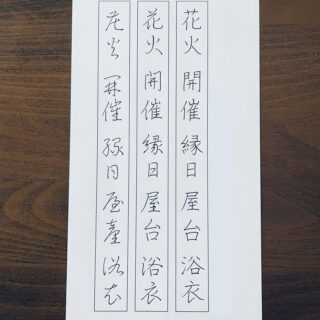 花火 開催 縁日 屋台 浴衣
花火 開催 縁日 屋台 浴衣
花火 開催 縁日 屋臺 浴衣